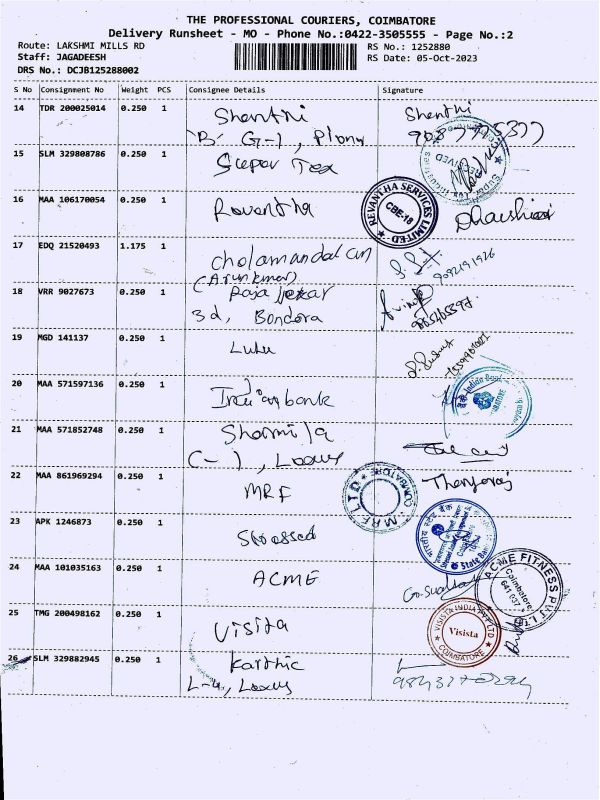 THE PROFESSIONAL COURIERS, COIMBATORE
Delivery Runsheet - MO - Phone No.:0422-3505555 - Page No.:2
Route: LAKSHMI MILLS RD
RS No.: 1252880
Staff: JAGADEESH
RS Date: 05-Oct-2023
DRS No.: DCJB125288002
S No Consignment No Weight PCS Consignee Details Signature
14 TDR 200025014 0.250 1 Shenthi Shenthi
B- G-1,
15 SLM 329808786 0.250 1 Super Tex
16 MAA 106170054 0.250 1 Revantha
REVANTHA SERVICES LIMITED
CBE-18
17 EDQ 21520493 1.175 1 Cholamandalam
(Arunkumar) 9092191926
18 VRR 9027673 0.250 1 Raja
3d, Bondora
19 MGD 141137 0.250 1 Lulu
20 MAA 571597136 0.250 1 Indian bank
Indian Bank
21 MAA 571852748 0.250 1 Sharmila
C-1,
22 MAA 861969294 0.250 1 MRF
MRF LTD COIMBATORE
23 APK 1246873 0.250 1
State Bank
24 MAA 101035163 0.250 1 ACME
ACME FITNESS PVT LTD
Coimbatore
641 037
25 TMG 200498162 0.250 1 Visista
VISISTA INDIA PVT LTD
Visista
COIMBATORE
26 SLM 329882945 0.250 1 Karthic
L-4,